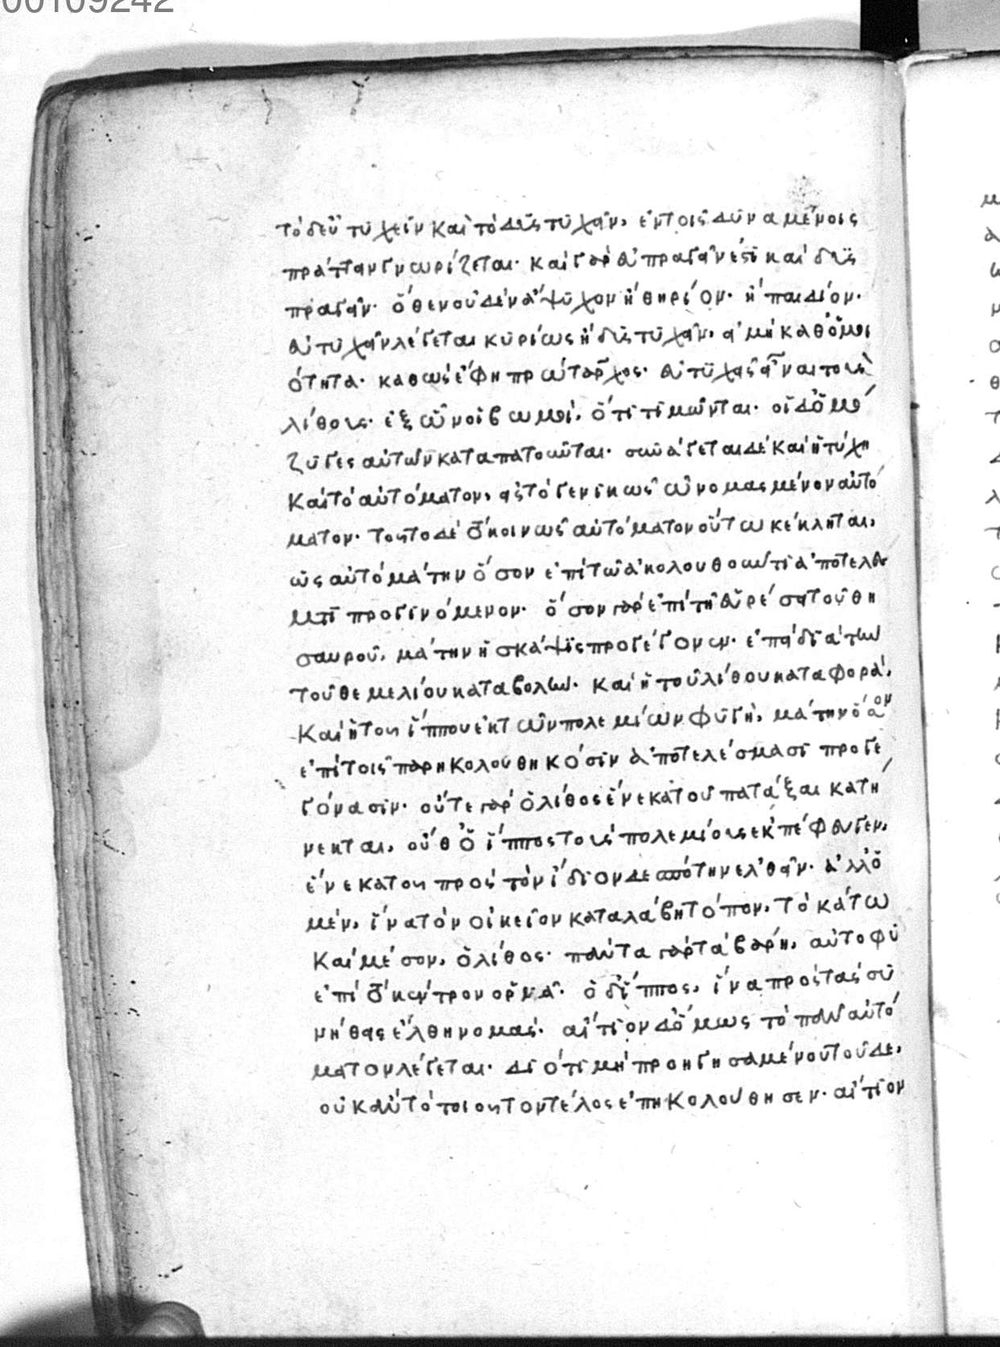 00109242
τὸ δ' εὐτυχεῖν καὶ τὸ δυστυχεῖν, ἐν τοῖς δυναμένοις
πράττειν γνωρίζεται· καὶ γὰρ εὐπραγεῖν ἐστι καὶ δυς
πραγεῖν· ὅθεν οὐδὲν ἄψυχον ἢ θηρίον· ἢ παιδίον·
εὐτυχεῖν λέγεται κυρίως ἢ δυστυχεῖν, εἰ μὴ καθ' ὁμοι
ότητα· καθὼς ἔφη πρώταρχος· εὐτυχεῖς εἶναι τοὺς
λίθους· ἐξ ὧν οἱ βωμοί, ὅτι τιμῶνται· οἱ δ' ὁμό
ζυγες αὐτῶν καταπατοῦνται· συνάγεται δὲ καὶ ἡ τύχη
καὶ τὸ αὐτόματον, εἰς τὸ γενικῶς ὠνομασμένον αὐτό
ματον· τοῦτο δὲ τὸ κοινῶς αὐτόματον οὕτω κέκληται,
ὡς αὐτὸ μάτην ὅσον ἐπὶ τῶ ἀκολουθοῦντι ἀποτελέσ
ματι προγινόμενον· ὅσον γὰρ ἐπὶ τῆ εὑρέσει τοῦ θη
σαυροῦ, μάτην ἡ σκάψις προγέγονεν· ἐπεὶ διὰ τὴν
τοῦ θεμελίου καταβολήν· καὶ ἡ τοῦ λίθου καταφορά,
καὶ ἡ τοῦ ἵππου ἐκ τῶν πολεμίων φυγή, μάτην ὅσον
ἐπὶ τοῖς παρηκολουθηκόσιν ἀποτελέσμασι προγε
γόνασιν· οὔτε γὰρ ὁ λίθος ἕνεκα τοῦ πατάξαι κατή
νεκται, οὔθ' ὁ ἵππος τοὺς πολεμίους ἐκπέφευγεν,
ἕνεκα τοῦ πρὸς τὸν ἴδιον δεσπότην ἐλθεῖν· ἀλλ' ὁ
μὲν, ἵνα τὸν οἰκεῖον καταλάβη τόπον, τὸ κάτω
καὶ μέσον, ὁ λίθος· πάντα γὰρ τὰ βάρη, αὐτοφυ
ἐπὶ τὸ κέντρον ὁρμᾶ· ὁ δ' ἵππος, ἵνα πρὸς τὰς συ
νήθεις ἔλθη νομάς· αἴτιον δ' ὅμως τὸ πᾶν αὐτό
ματον λέγεται· διότι μὴ προηγησαμένου τοῦδε,
οὐκ ἂν τὸ τοιοῦτον τέλος ἐπηκολούθησεν· αἴτιον